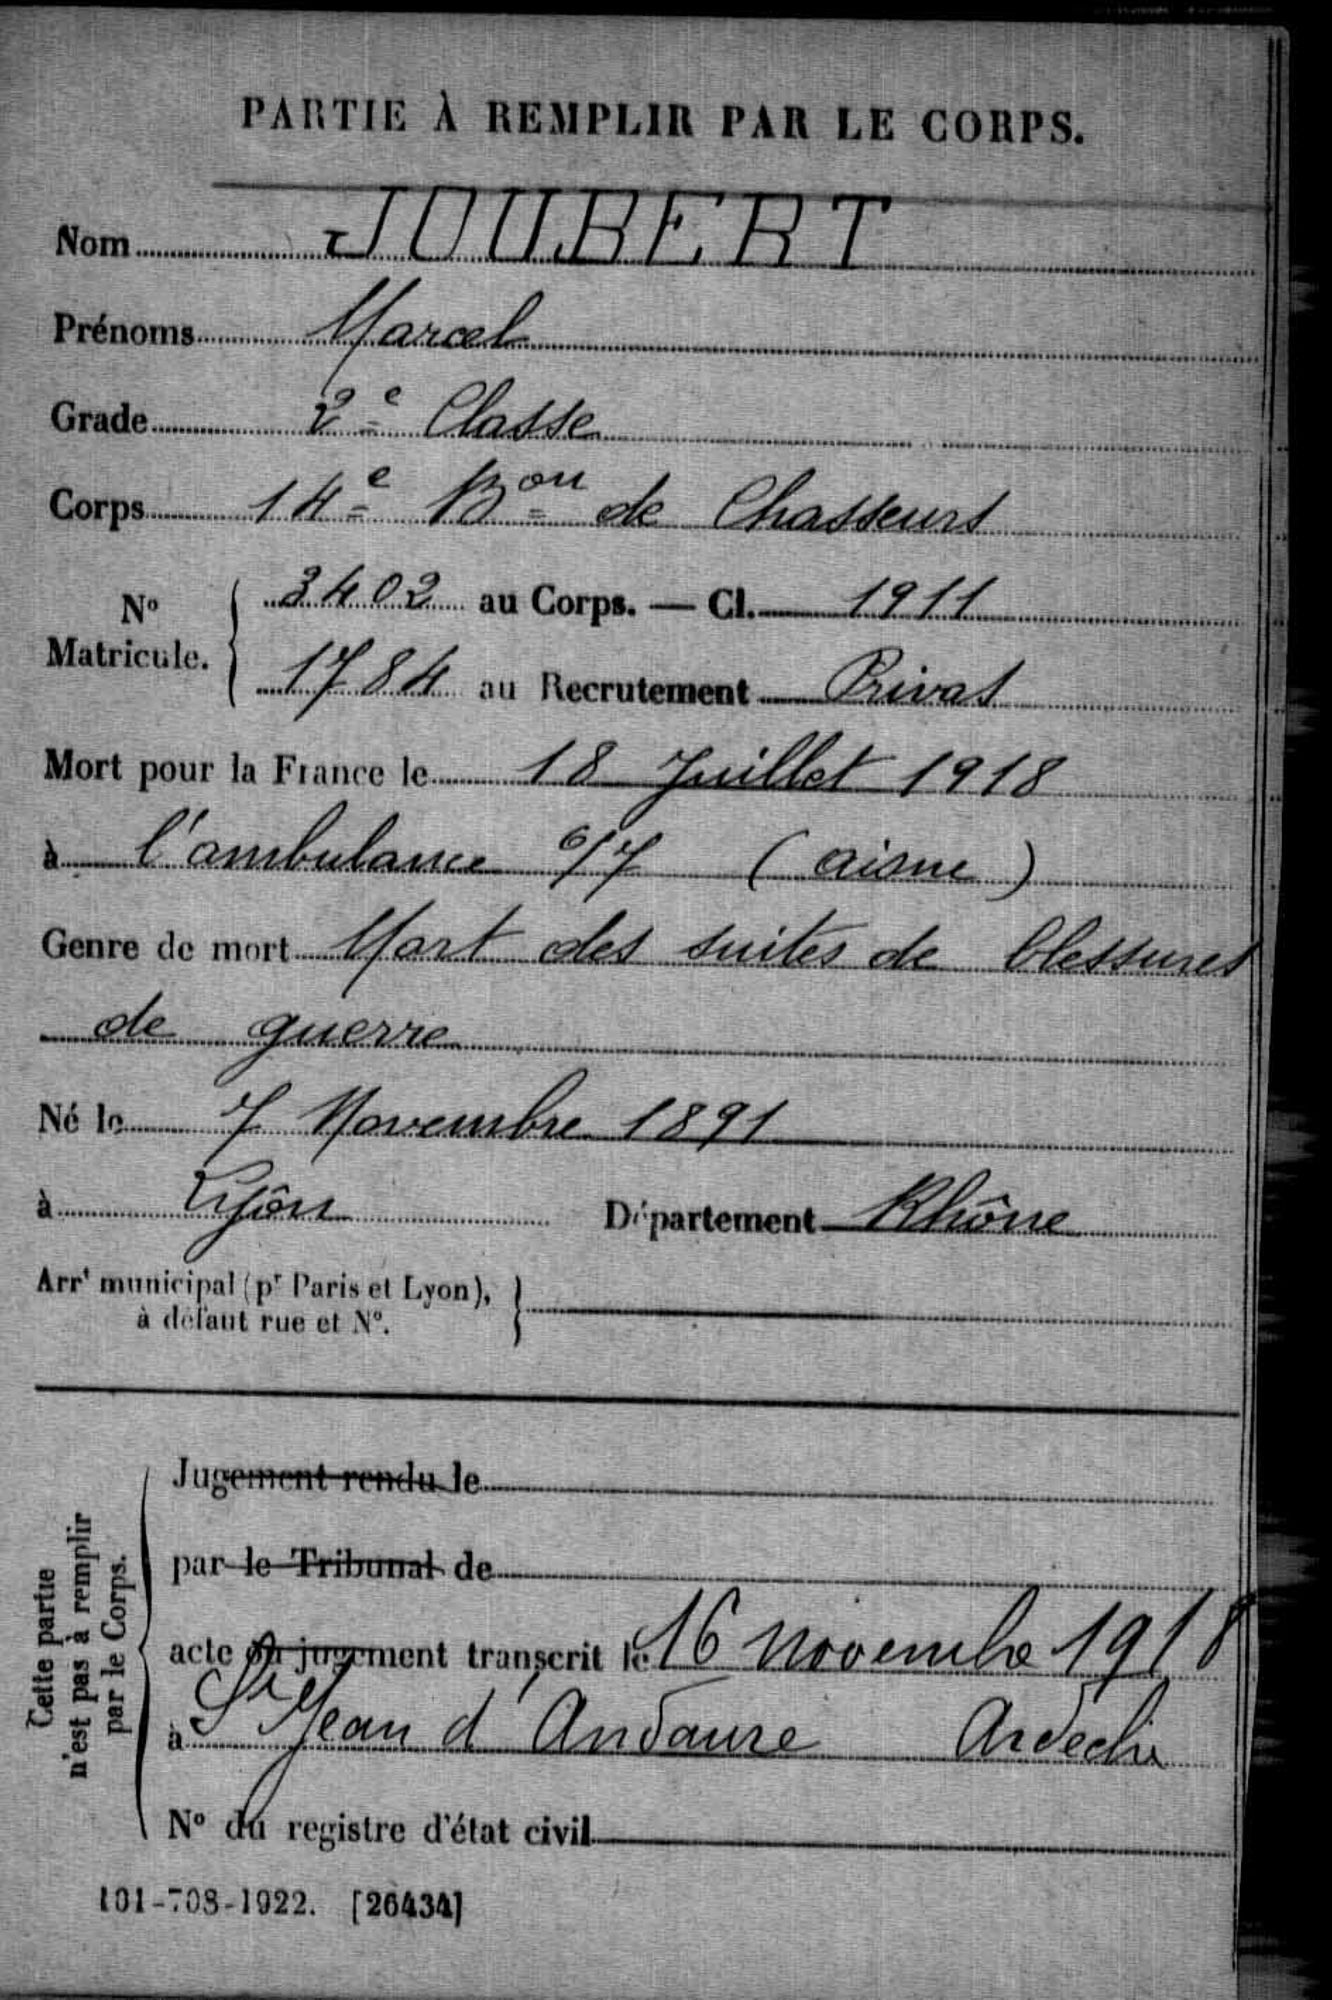 PARTIE À REMPLIR PAR LE CORPS.
Nom JOUBERT
Prénoms Marcel
Grade 2e Classe
Corps 14e Bon de Chasseurs
No Matricule. { 3402 au Corps. — Cl. 1911
1784 au Recrutement Privas
Mort pour la France le 18 Juillet 1918
à l'ambulance 6/7 (aisne)
Genre de mort Mort des suites de blessures
de guerre
Né le 7 Novembre 1891
à Lyon Département Rhône
Arrt municipal (pr Paris et Lyon),
à défaut rue et No.
Cette partie
n'est pas à remplir
par le Corps.
Jugement rendu le
par le Tribunal de
acte ou jugement transcrit le 16 novembre 1918
à St Jean d'Andaure Ardèche
No du registre d'état civil
101-708-1922. [26434]